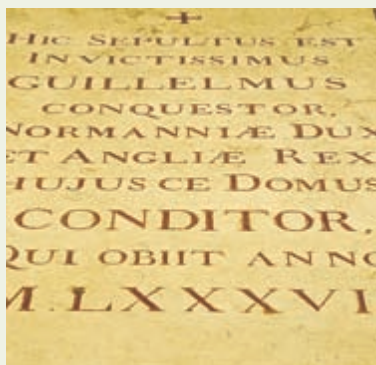 HIC SEPULTUS EST
INVICTISSIMUS
GUILLELMUS
CONQUESTOR,
NORMANNIÆ DUX
ET ANGLIÆ REX
HUJUSCE DOMUS
CONDITOR,
QUI OBIIT ANNO
M.LXXXVI